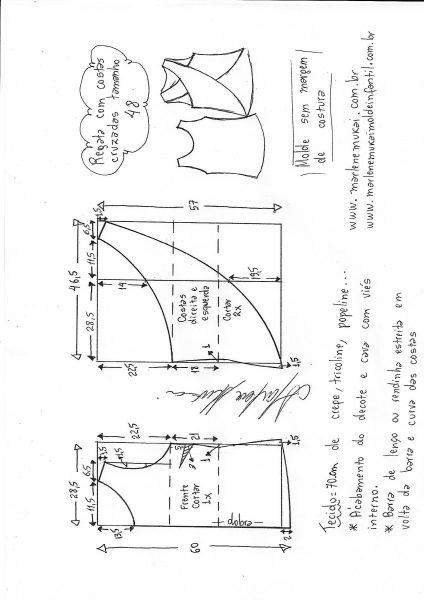 Regata com costas
cruzadas tamanho
48
Molde sem margem
de costura
www.marlenemukai.com.br
www.marlenemukaimoldeinfantil.com.br
57
1,5
6,5
11,5
46,5
28,5
19
22,5
18
1
19,5
1,5
Costas
direita e
esquerda
Cortar
2x
22,5
21
1,5
6,5
11,5
28,5
13,5
3
1
1,5
2
60
Frente
Cortar
1x
dobra
Tecido = 70cm de crepe, tricoline, popeline...
* Acabamento do decote e cava com viés
interno.
* Barra de lenço ou rendinha estreita em
volta da barra e curva das costas